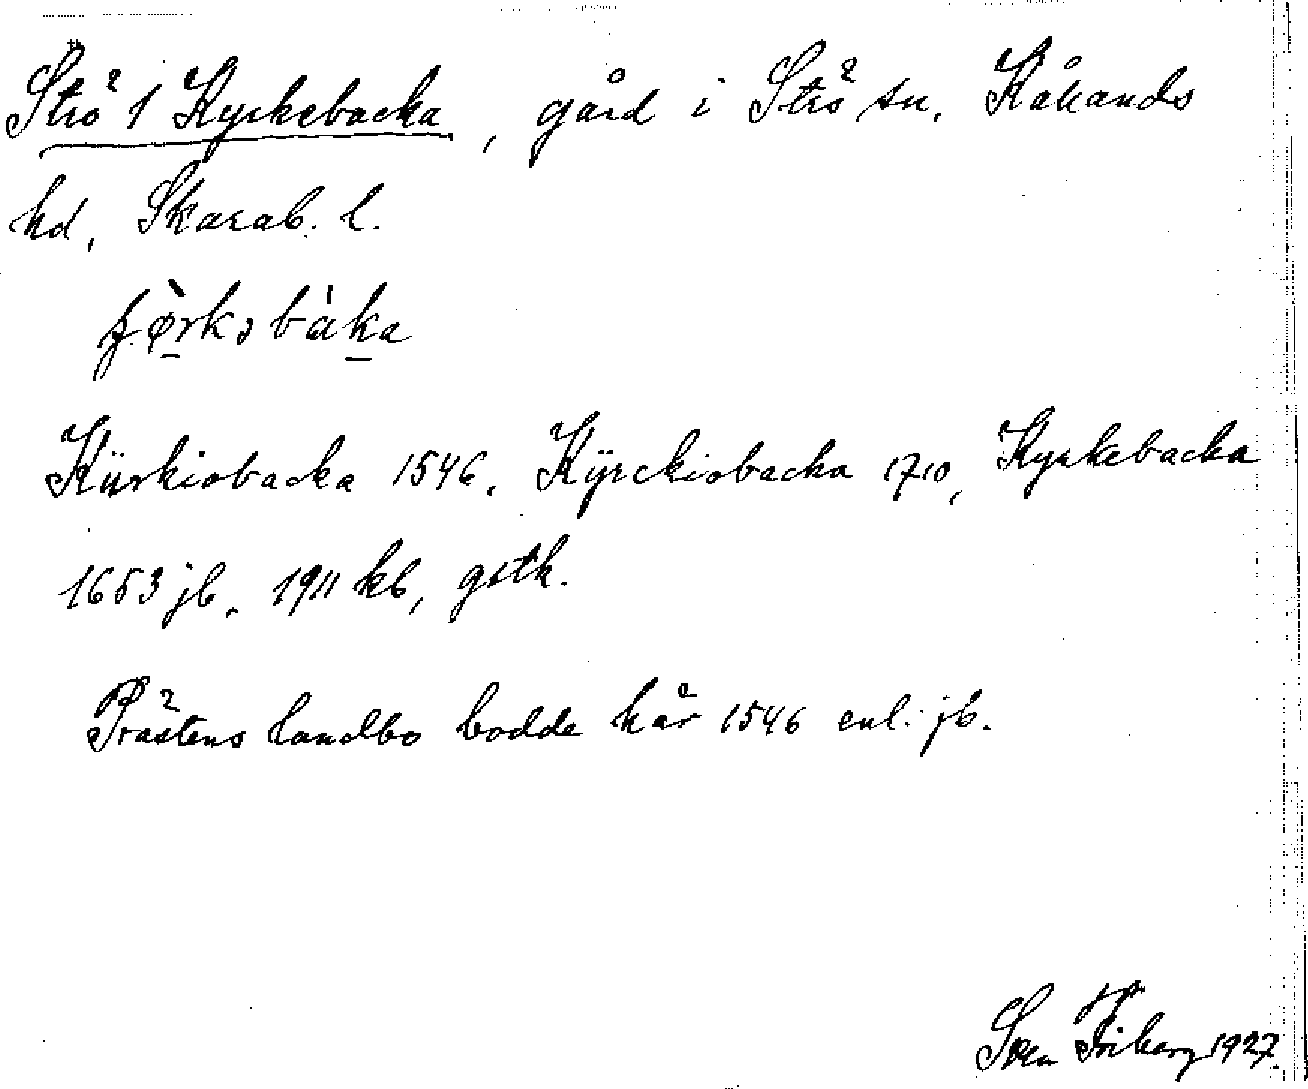 Strö 1 Kyrkebacka, gård i Strö sn, Kålands
hd, Skarab. l.
Kürkiobacka 1546, Kÿrckiobacka 1710, Kyrkebacka
1653 jb, 1911 kb, gstk.
Prästens landbo bodde här 1546 enl. jb.
Sven Friberg 1927